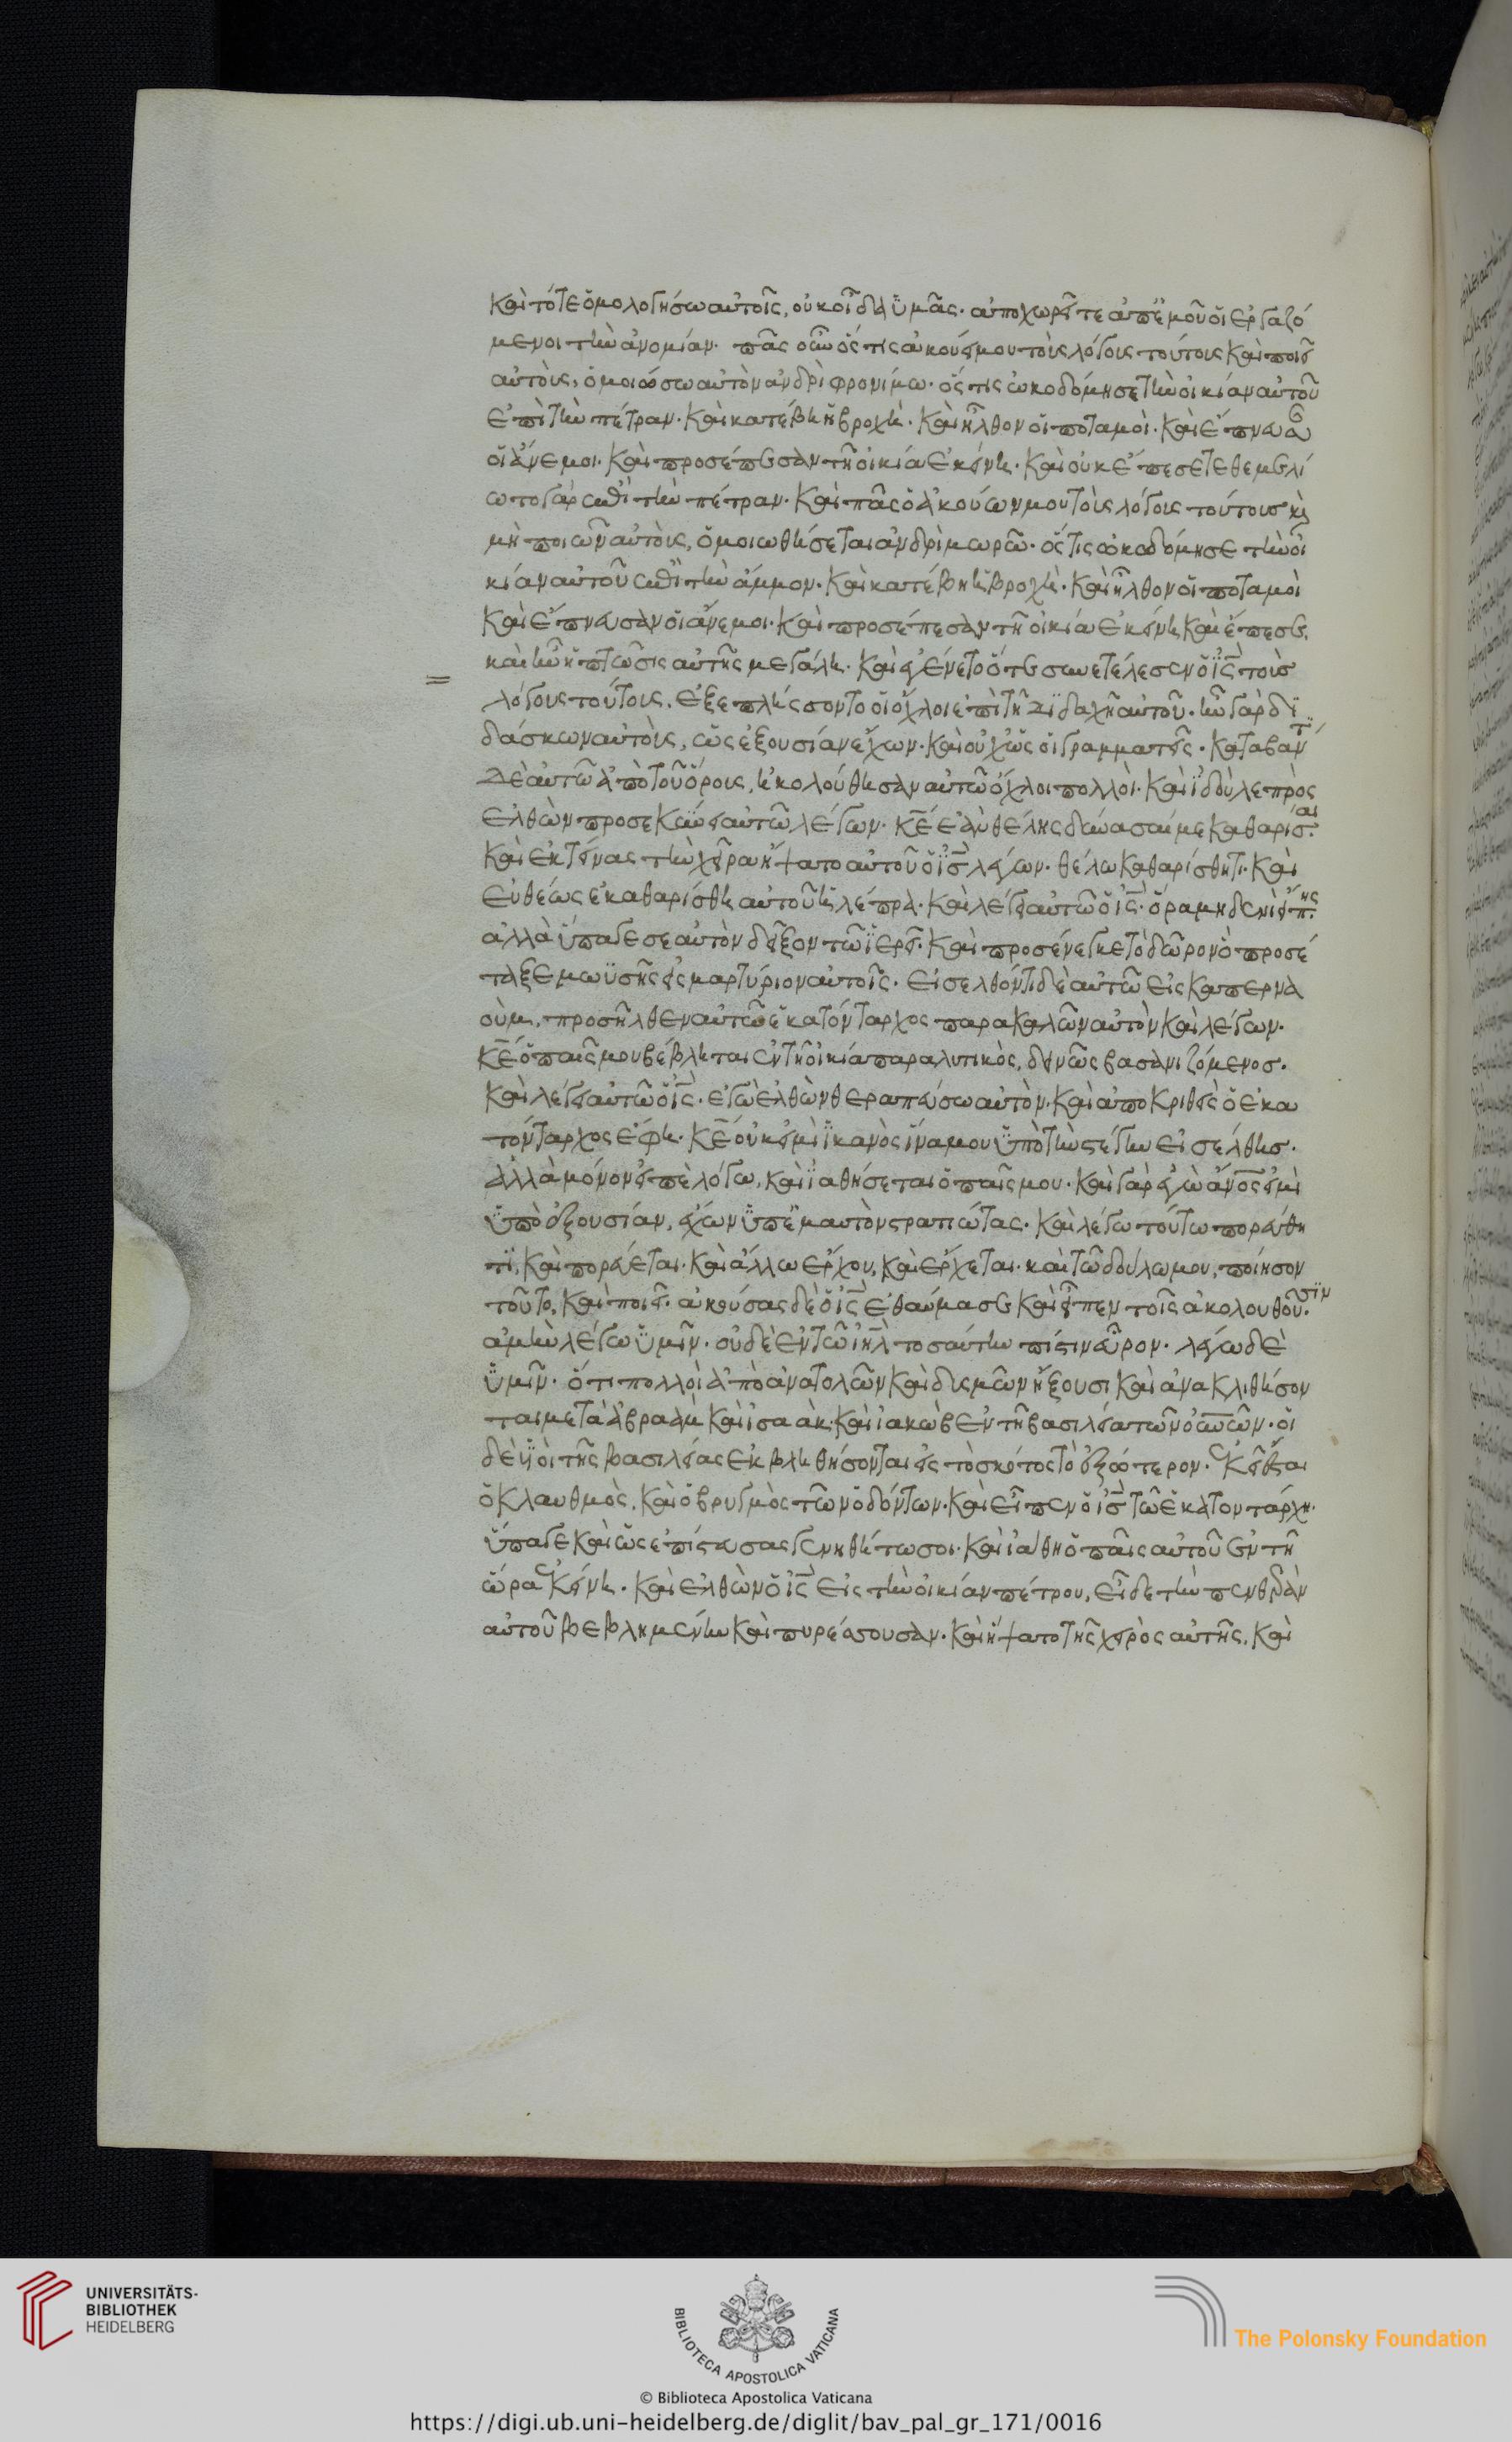 καὶ τότε ὁμολογήσω αὐτοῖς, οὐκ οἶδα ὑμᾶς· ἀποχωρεῖτε ἀπ' ἐμοῦ οἱ ἐργαζό
μενοι τὴν ἀνομίαν· πᾶς οὖν ὅστις ἀκούει μου τοὺς λόγους τούτους καὶ ποιεῖ
αὐτοὺς, ὁμοιώσω αὐτὸν ἀνδρὶ φρονίμω· ὅστις ὠκοδόμησε τὴν οἰκίαν αὐτοῦ
ἐπὶ τὴν πέτραν· καὶ κατέβη ἡ βροχὴ· καὶ ἦλθον οἱ ποταμοὶ· καὶ ἔπνευσαν
οἱ ἄνεμοι· καὶ προσέπεσαν τῆ οἰκία ἐκείνη· καὶ οὐκ ἔπεσε τεθεμελί
ωτο γὰρ ἐπὶ τὴν πέτραν· καὶ πᾶς ὁ ἀκούων μου τοὺς λόγους τούτους κ
μὴ ποιῶν αὐτοὺς, ὁμοιωθήσεται ἀνδρὶ μωρῶ· ὅστις ὠκοδόμησε τὴν οἰ
κίαν αὐτοῦ ἐπὶ τὴν ἄμμον· καὶ κατέβη ἡ βροχὴ· καὶ ἦλθον οἱ ποταμοὶ
καὶ ἔπνευσαν οἱ ἄνεμοι· καὶ προσέπεσαν τῆ οἰκία ἐκείνη καὶ ἔπεσε,
καὶ ἦν ἡ πτῶσις αὐτῆς μεγάλη· καὶ ἐγένετο ὅτε συνετέλεσεν ὁ ις τοὺς
λόγους τούτους, ἐξεπλήσσοντο οἱ ὄχλοι ἐπὶ τῆ διδαχῆ αὐτοῦ· ἦν γὰρ δι
δάσκων αὐτοὺς, ὡς ἐξουσίαν ἔχων· καὶ οὐχ ὡς οἱ γραμματεῖς· καταβάντι
δὲ αὐτῶ ἀπὸ τοῦ ὄρους, ἠκολούθησαν αὐτῶ ὄχλοι πολλοὶ· καὶ ἰδοὺ λεπρὸς
ἐλθὼν προσεκύνει αὐτῶ λέγων· κε ἐὰν θέλης δύνασαί με καθαρίσαι·
καὶ ἐκτείνας τὴν χεῖρα ἥψατο αὐτοῦ ὁ ις λέγων· θέλω καθαρίσθητι· καὶ
εὐθέως ἐκαθαρίσθη αὐτοῦ ἡ λέπρα· καὶ λέγει αὐτῶ ὁ ις· ὅρα μηδενὶ εἴπης·
ἀλλὰ ὕπαγε σεαυτὸν δεῖξον τῶ ἱερεῖ· καὶ προσένεγκε τὸ δῶρον ὃ προσέ
ταξε μωϋσῆς εἰς μαρτύριον αὐτοῖς· εἰσελθόντι δὲ αὐτῶ εἰς καπερνα
οὺμ, προσῆλθεν αὐτῶ ἑκατόνταρχος παρακαλῶν αὐτὸν καὶ λέγων·
κε ὁ παῖς μου βέβληται ἐν τῆ οἰκία παραλυτικὸς, δεινῶς βασανιζόμενος·
καὶ λέγει αὐτῶ ὁ ις· ἐγὼ ἐλθὼν θεραπεύσω αὐτὸν· καὶ ἀποκριθεὶς ὁ ἑκα
τόνταρχος ἔφη· κε οὐκ εἰμὶ ἱκανὸς ἵνα μου ὑπὸ τὴν στέγην εἰσέλθης·
ἀλλὰ μόνον εἰπὲ λόγω, καὶ ἰαθήσεται ὁ παῖς μου· καὶ γὰρ ἐγὼ ανος εἰμὶ
ὑπὸ ἐξουσίαν, ἔχων ὑπ' ἐμαυτὸν στρατιώτας· καὶ λέγω τούτω πορεύθη
τι, καὶ πορεύεται· καὶ ἄλλω ἔρχου, καὶ ἔρχεται· καὶ τῶ δούλω μου, ποίησον
τοῦτο, καὶ ποιεῖ· ἀκούσας δὲ ὁ ις ἐθαύμασε καὶ εἶπεν τοῖς ἀκολουθοῦσιν·
ἀμὴν λέγω ὑμῖν· οὐδὲ ἐν τῶ ιηλ τοσαύτην πίστιν εὗρον· λέγω δὲ
ὑμῖν· ὅτι πολλοὶ ἀπὸ ἀνατολῶν καὶ δυσμῶν ἥξουσι καὶ ἀνακλιθήσον
ται μετὰ ἀβραὰμ καὶ ἰσαὰκ καὶ ἰακὼβ ἐν τῆ βασιλεία τῶν οὐνῶν· οἱ
δὲ υἱοὶ τῆς βασιλείας ἐκβληθήσονται εἰς τὸ σκότος τὸ ἐξώτερον· ἐκεῖ ἔσται
ὁ κλαυθμὸς, καὶ ὁ βρυγμὸς τῶν ὀδόντων· καὶ εἶπεν ὁ ις τῶ ἑκατοντάρχη·
ὕπαγε καὶ ὡς ἐπίστευσας γενηθήτω σοι· καὶ ἰάθη ὁ παῖς αὐτοῦ ἐν τῆ
ὥρα ἐκείνη· καὶ ἐλθὼν ὁ ις εἰς τὴν οἰκίαν πέτρου, εἶδε τὴν πενθερὰν
αὐτοῦ βεβλημένην καὶ πυρέσσουσαν· καὶ ἥψατο τῆς χειρὸς αὐτῆς, καὶ
UNIVERSITÄTS-
BIBLIOTHEK
HEIDELBERG
BIBLIOTECA APOSTOLICA VATICANA
The Polonsky Foundation
© Biblioteca Apostolica Vaticana
https://digi.ub.uni-heidelberg.de/diglit/bav_pal_gr_171/0016